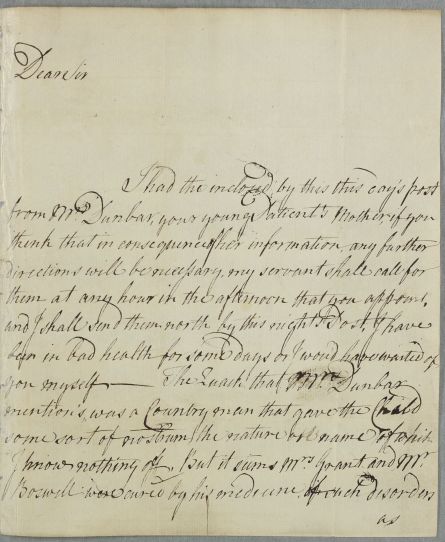 Dear Sir
I had the inclosed, by this this day's post
from Mrs Dunbar, your young Patient's Mother, if you
think that in consequence of her information any further
directions will be necessary, my servant shall call for
them at any hour in the afternoon that you appoint,
and I shall send them north by this night's Post. I have
been in bad health for some days or I would have waited of
you myself — The Quack that Mrs Dunbar
mention's, was a Country man that gave the Child
some sort of nostrum the nature or name of which
I know nothing of. But it seems Mrs Grant and Mr
Boswell were cured by his medicine of such disorders
as